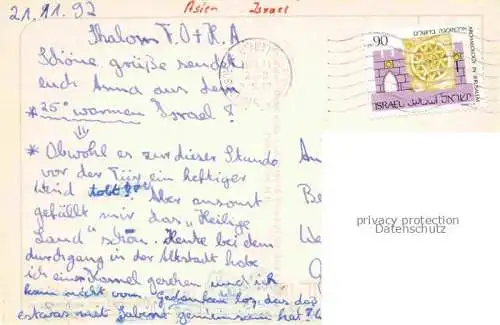 21.11.92
Asien Israel
Shalom T.O + K.A.
Schöne grüße sendet
euch Anna aus dem
*25° warmen Israel!
* Obwohl es zur dieser Stunde
vor der Tür ein heftiger
Wind tobt! Aber ansonst
gefällt mir das „Heilige
Land" schön. Heute bei dem
durchgang in der Altstadt habe
ich einer Kamel gesehen und ich
kann nicht vom Gedanken los, das das
estwas mit Sabina gemeinsam hat?
90
ARCHAEOLOGY IN JERUSALEM
ISRAEL اسرائيل ישראל
privacy protection
Datenschutz